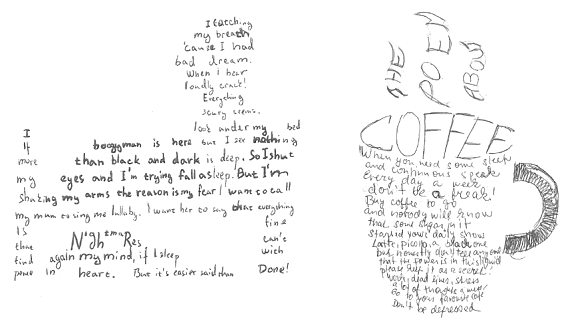 I catching
my breath
'cause I had
bad dream.
When i hear
loudly crack!
Everything
scary seems.
I look under my bed
If boogyman is here but I see nothing
more than black and dark is deep. So I shut
my eyes and I'm trying fall asleep. But I'm
shaking my arms the reason is my fear I want to call
my mum to sing me lullaby. I want her to say that everything
Is fine
that NighTmaRes can't
find again my mind, if I sleep with
peace in heart. But it's easier said than Done!
THE POEM ABOUT
COFFEE
When you need some sleep
and continuous speak
Every day a week
don't be a freak!
Buy coffee to go
and nobody will know
that some sugar, milk
started your daily show
Latte, picolo, a black one
but honestly don't tell anyone
that the power is in this liquid
please keep it as a secret!
Work, dead lines, stress
a lot of thoughts a mess
Go to your favourite cafe
Don't be depressed